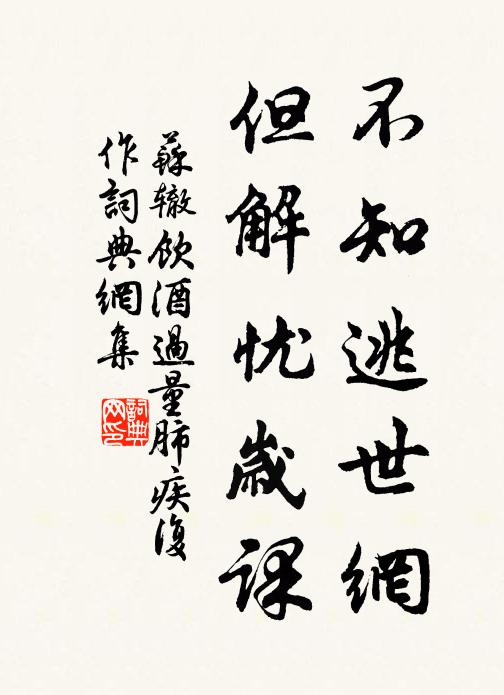 不知逃世網
但解忧歲課
蘇辙飲酒過量肺疾復
作詞典網集
詞典网印